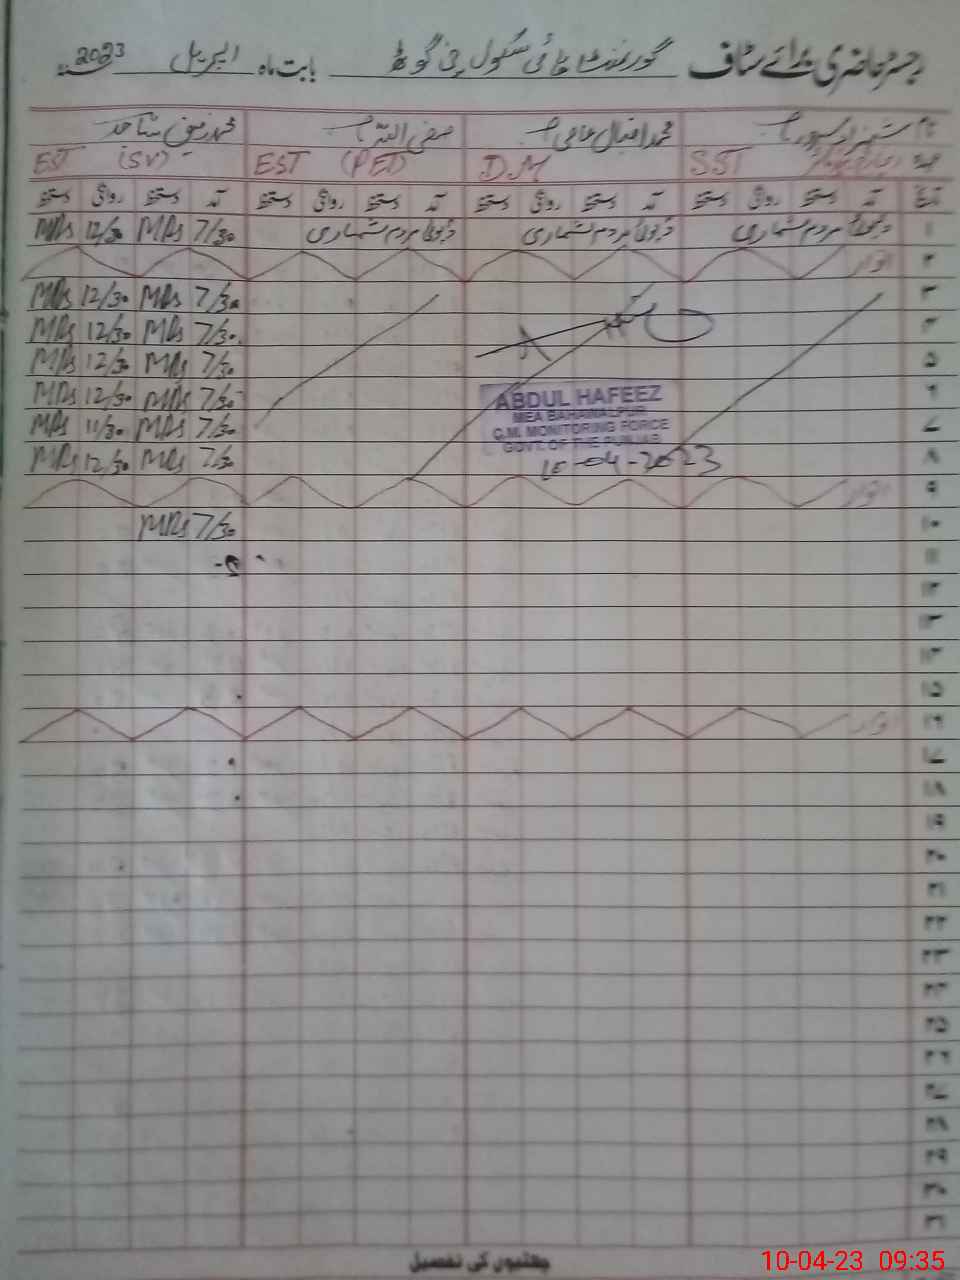 رجسٹر حاضری برائے سٹاف گورنمنٹ ہائی سکول چنی گوٹھ بابت ماہ اپریل 2023
نام محمد اقبال صفی اللہ محمد رفیق ساجد
عہدہ SST D.M EST (PET) EST (SV)
تاریخ آمد دستخط روانگی دستخط آمد دستخط روانگی دستخط آمد دستخط روانگی دستخط آمد دستخط روانگی دستخط
۱ ڈیوٹی مردم شماری ڈیوٹی مردم شماری ڈیوٹی مردم شماری 7/30 MRs 12/30 MRs
۲ اتوار
۳ 7/30 MRs 12/30 MRs
۴ 7/30 MRs 12/30 MRs
۵ 7/30 MRs 12/30 MRs
۶ 7/30 MRs 12/30 MRs
۷ 7/30 MRs 11/30 MRs
۸ 7/30 MRs 12/30 MRs
ABDUL HAFEEZ
MEA BAHAWALPUR
C.M. MONITORING FORCE
GOVT. OF THE PUNJAB
10-04-2023
۹ اتوار
۱۰ 7/30 MRs
۱۱
۱۲
۱۳
۱۴
۱۵
۱۶ اتوار
۱۷
۱۸
۱۹
۲۰
۲۱
۲۲
۲۳
۲۴
۲۵
۲۶
۲۷
۲۸
۲۹
۳۰
۳۱
چھٹیوں کی تفصیل
10-04-23 09:35